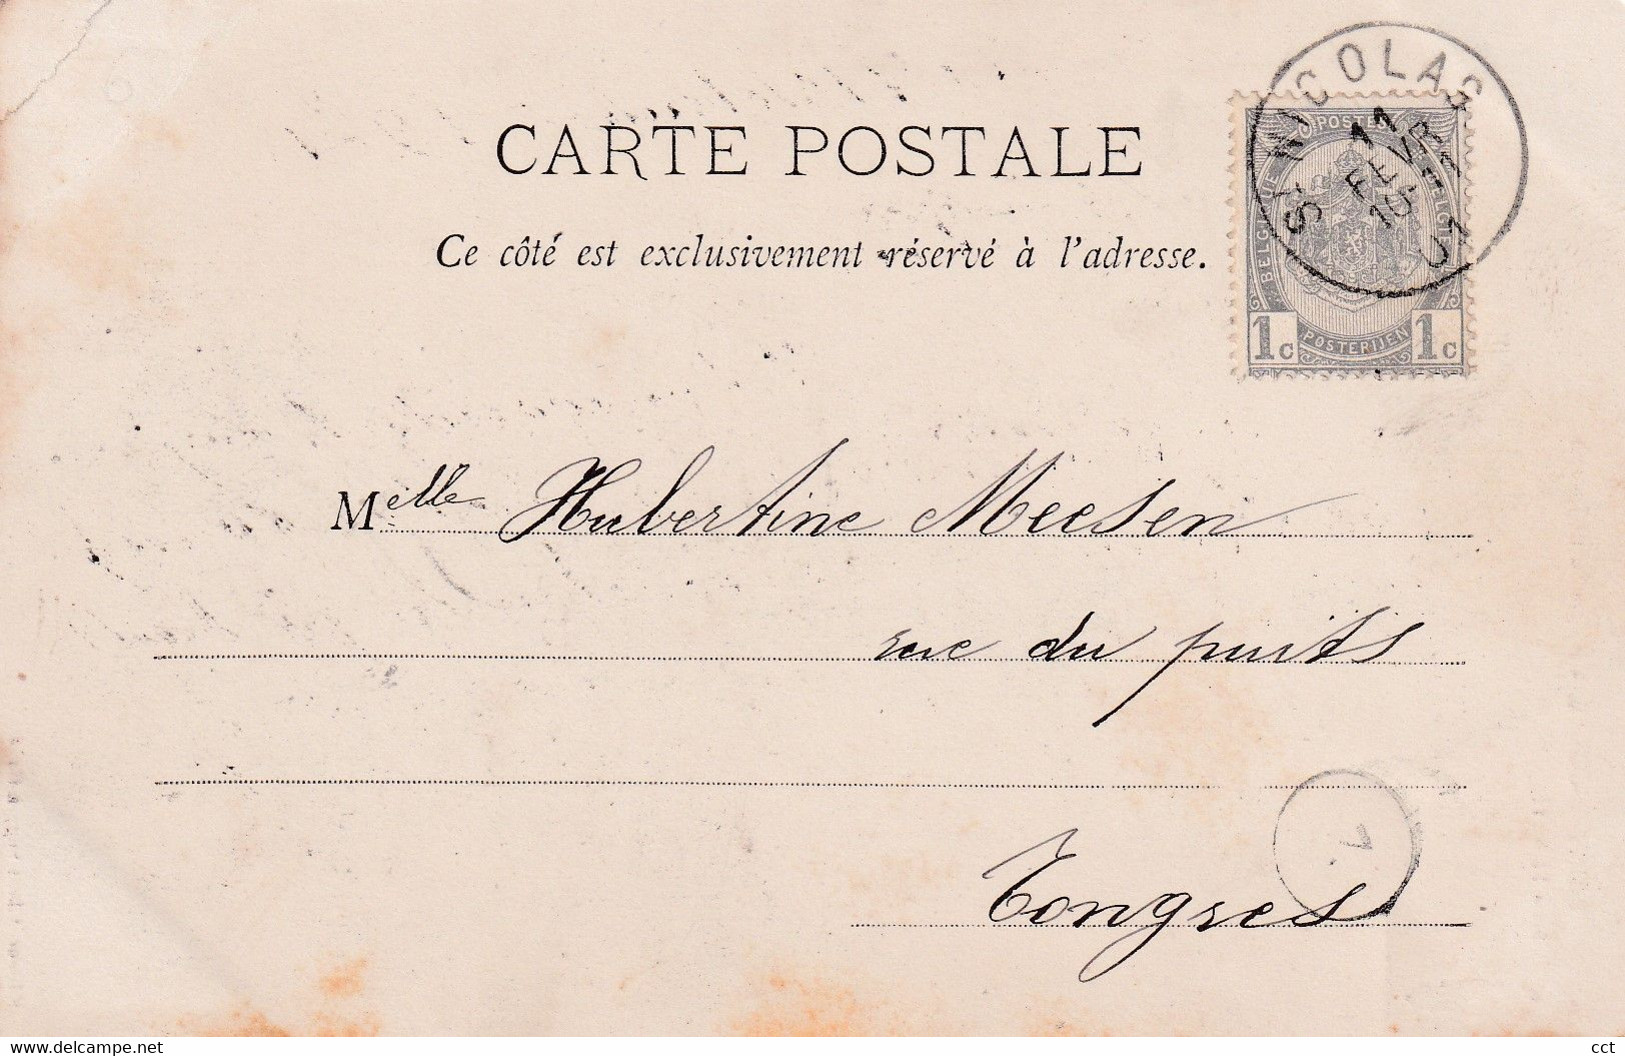 CARTE POSTALE
Ce côté est exclusivement réservé à l'adresse.
ST NICOLAS
11
FEVR
10-11
01
POSTES
BELGIQUE BELGIË
1c 1c
POSTERIJEN
Melle Hubertine Meesen
rue du puits
7
Tongres
www.delcampe.net
cct